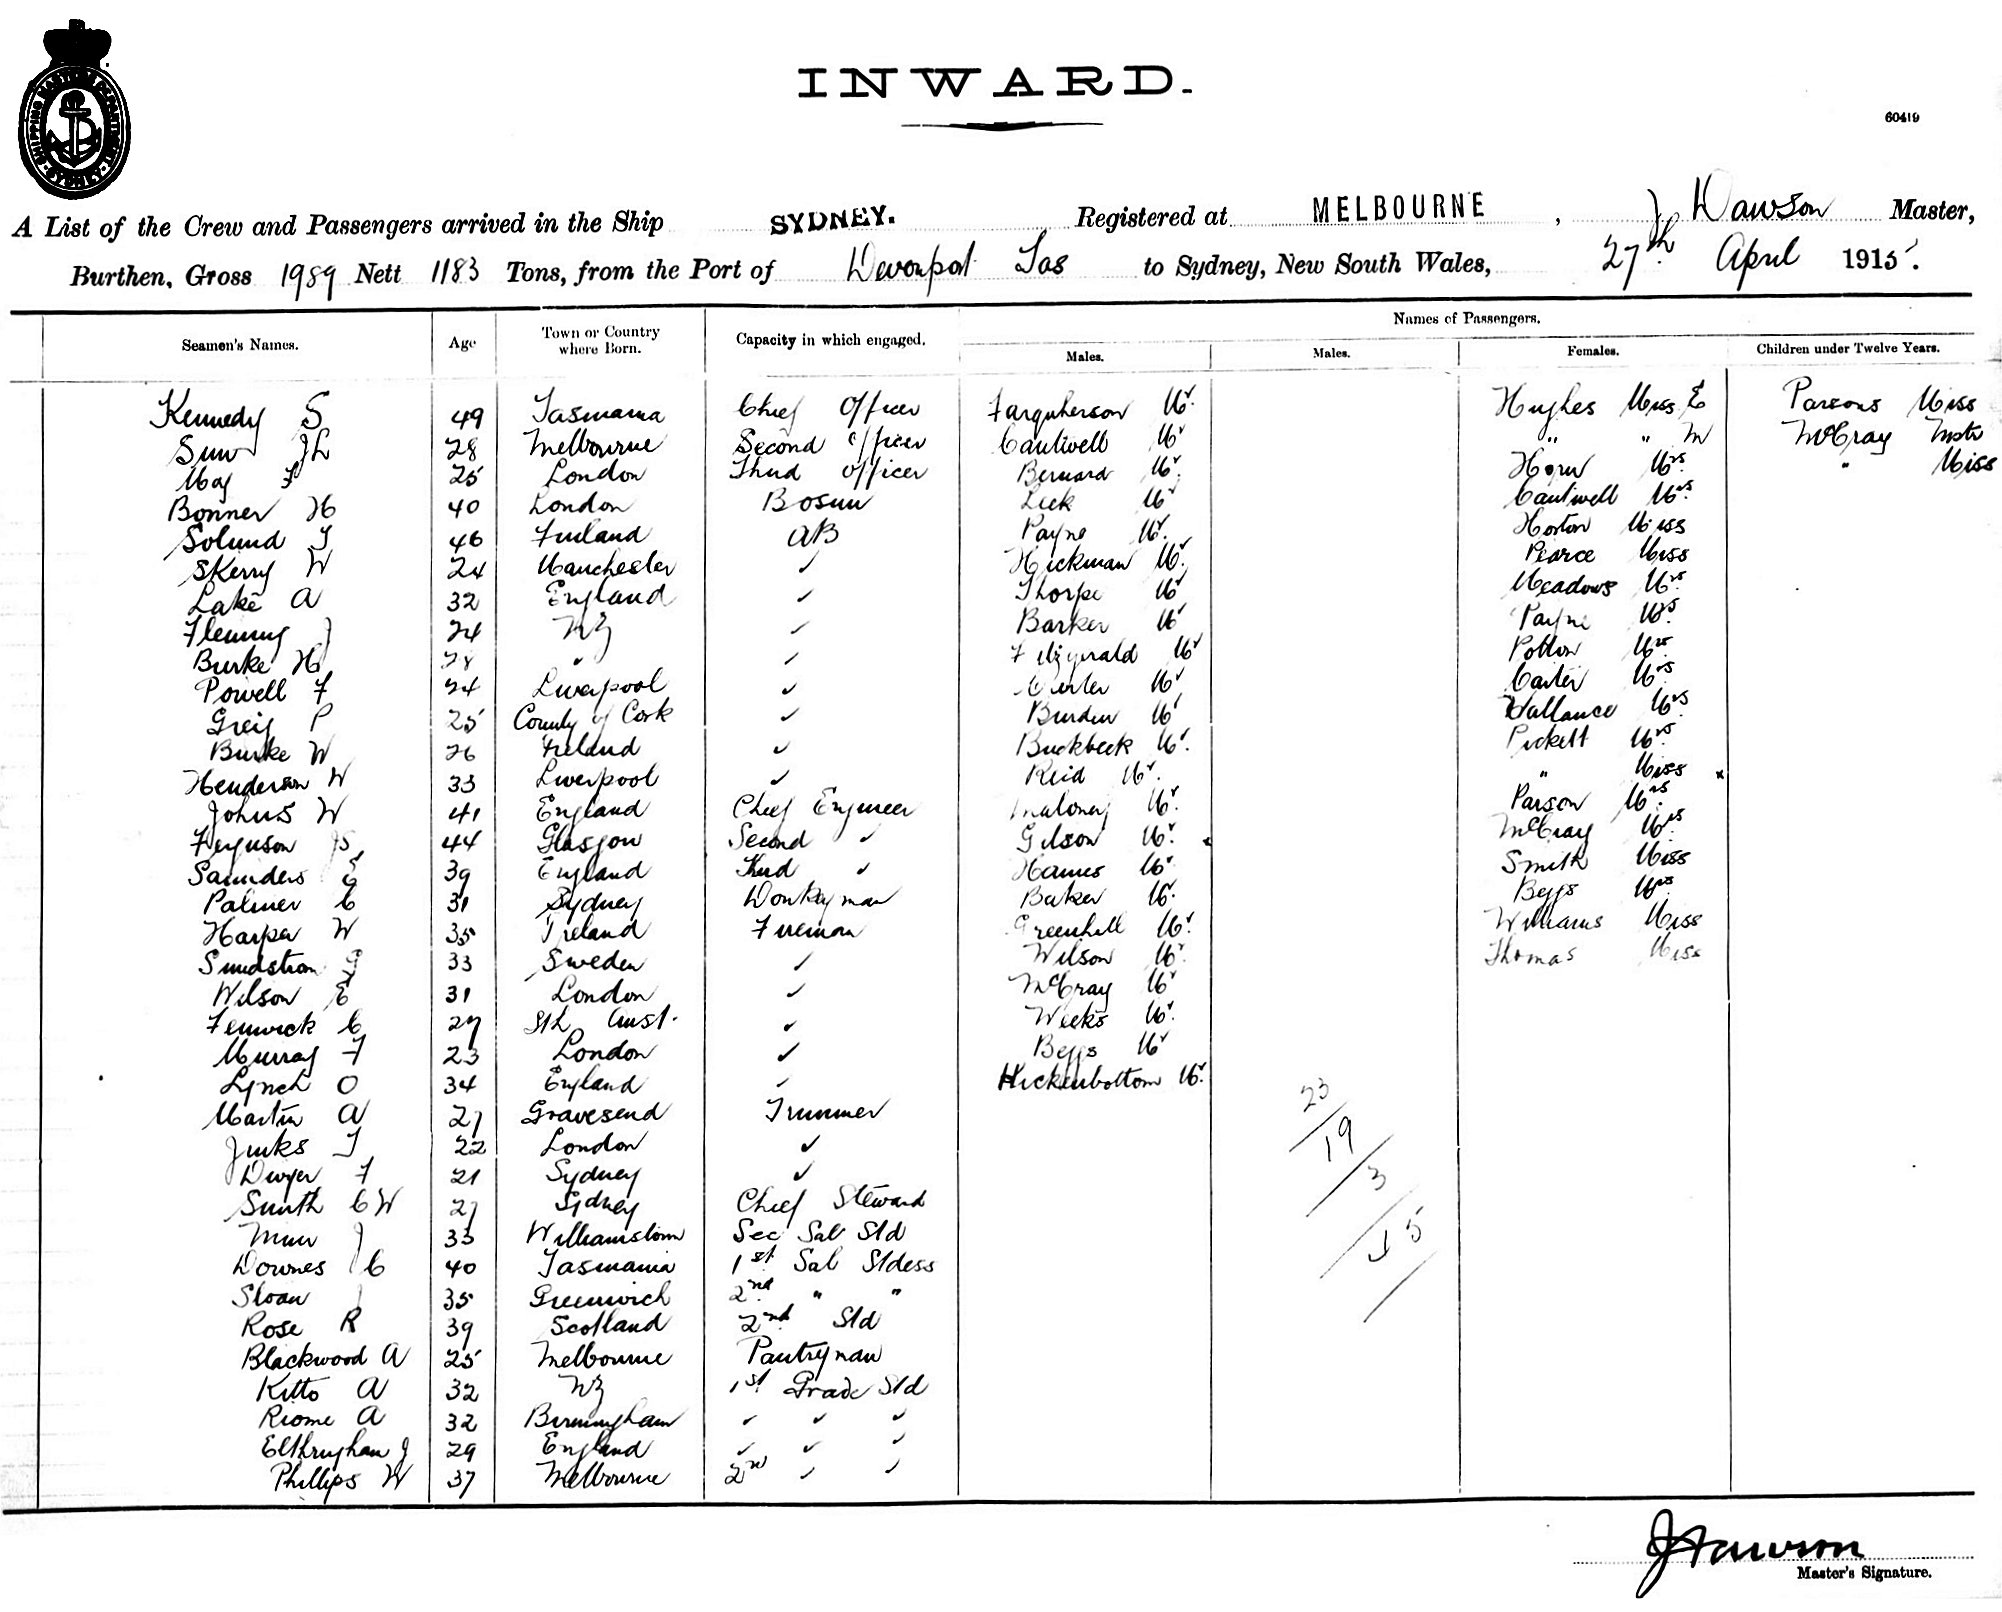 SHIPPING MASTERS DEPARTMENT SYDNEY
INWARD.
60419
A List of the Crew and Passengers arrived in the Ship SYDNEY. Registered at MELBOURNE, J Dawson Master,
Burthen, Gross 1989 Nett 1183 Tons, from the Port of Devonport Tas to Sydney, New South Wales, 27th April 1915.
Names of Passengers.
Seamen's Names. Age Town or Country where Born. Capacity in which engaged. Males. Males. Females. Children under Twelve Years.
Kennedy S 49 Tasmania Chief Officer Farquherson Mr. Hughes Miss E Parsons Miss
JL 28 Melbourne Second Officer Cantwell Mr " " M McCray Mstr
May F 25 London Third Officer Bernard Mr. Horn Mrs. " Miss
Bonner H 40 London Bosun Leek Mr Cantwell Mrs.
Solund J 46 Finland AB Payne Mr. Horton Miss
Skerry W 24 Manchester ✓ Hickman Mr. Pearce Miss
Lake A 32 England ✓ Thorpe Mr Meadows Mrs.
Fleming J 24 NZ ✓ Barker Mr Payne Mrs.
Burke H 28 " ✓ Fitzgerald Mr Mrs
Powell F 24 Liverpool ✓ Mr Carter Mrs
Greig P 25 County of Cork ✓ Burden Mr Wallance Mrs
Burke W 26 Ireland ✓ Buckbeck Mr. Pickett Mrs.
Henderson W 33 Liverpool ✓ Reid Mr. " Miss x
Johns W 41 England Chief Engineer Maloney Mr. Parson Mrs.
Ferguson JS 44 Glasgow Second ✓ Gilson Mr. x McCray Mrs
Saunders G 39 England Third ✓ Hames Mr. Smith Miss
Palmer C 31 Sydney Donkeyman Baker Mr. Beggs Mrs
Harper W 35 Ireland Fireman Greenhill Mr. Williams Miss
Sundstrom G 33 Sweden ✓ Wilson Mr. Thomas Miss
Wilson E 31 London ✓ McCray Mr
Fenwick C 27 Sth Aust. ✓ Weeks Mr.
Murray F 23 London ✓ Beggs Mr
Lynch O 34 England ✓ Hickenbottom Mr.
Martin A 27 Gravesend Trimmer 23
Jinks T 22 London ✓ 19
Dwyer F 21 Sydney ✓ 3
Smith C W 27 Sydney Chief Steward
Muir J 33 Williamstown Sec Sal Std
Downes C 40 Tasmania 1st Sal Stdess
Sloan J 35 Greenwich 2nd " "
Rose R 39 Scotland 2nd Std
Blackwood A 25 Melbourne Pantryman
Kitto A 32 NZ 1st Grade Std
Riome A 32 Birmingham ✓ ✓ ✓
J 29 England ✓ ✓ ✓
Phillips W 37 Melbourne 2nd ✓ ✓
J Dawson
Master's Signature.